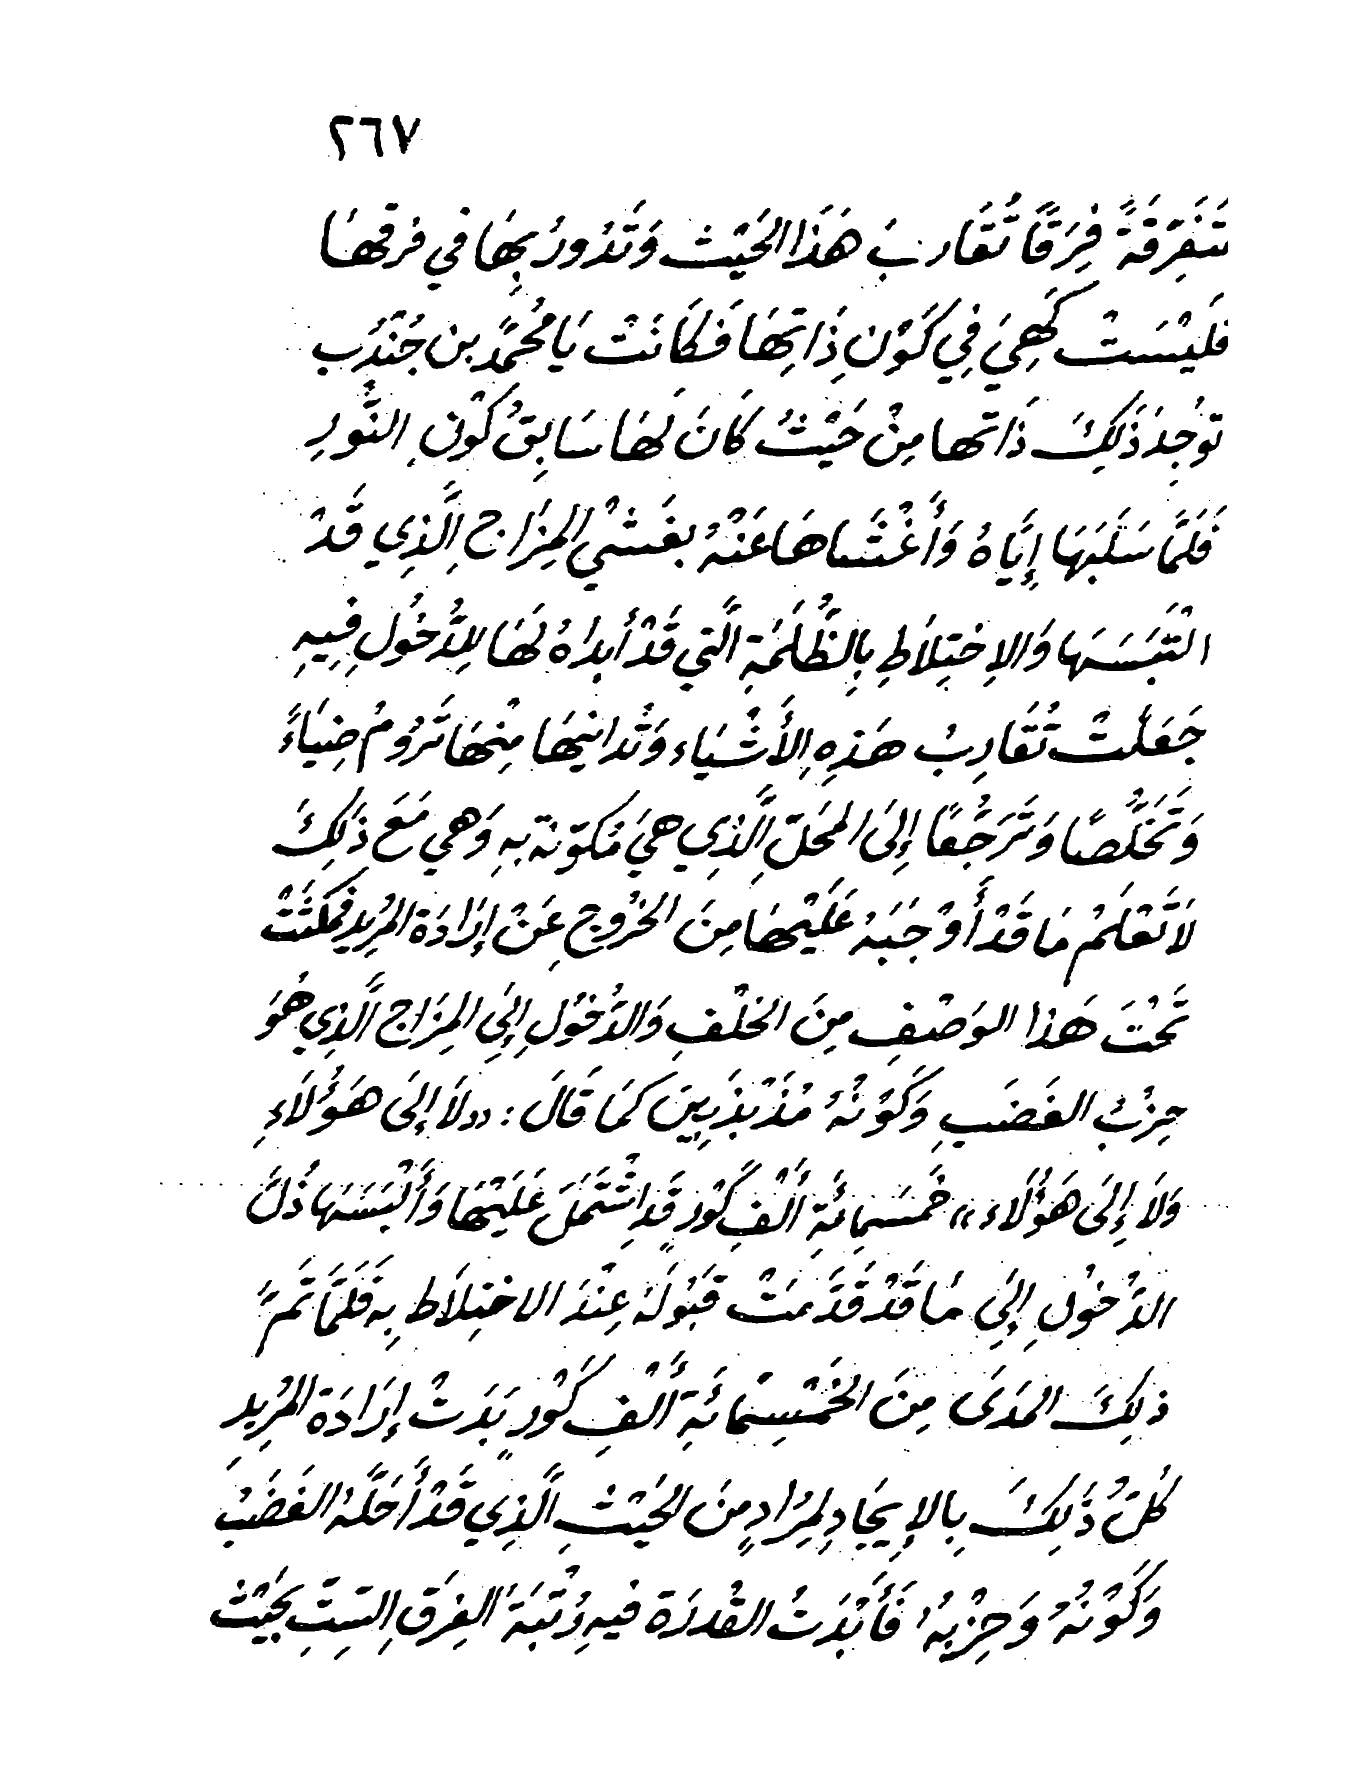 ٢٦٧
تَنَفِرّقَةً فِرَقًا تُقَارِبَ هَذَا الحَيْث وَتَدُورُ بِهَا في فرقهَا
فَلَيْسَتْ كَهِيَ فِي كَوْنِ ذَاتِهَا فَكَانَتْ يَا مُحَمَّد بن جُنْدُب
توُجِدُ ذَلِكَ ذَاتها مِنْ حَيْثُ كَانَ لَهَا سَابِقُ كَوْنِ النُّورِ
فَلَمَّا سَلَبَهَا إِيَّاهُ وَأَغْشَاهَا عَنْهُ بغَشْيِ المِزَاجِ الَّذِي قَدْ
الْتَبَسَهَا وَالاِختِلاَطِ بِالظُّلْمَةِ الَّتي قَدْ أبداهُ لَهَا لِلدُّخُولِ فِيهِ
جَعَلَتْ تُقَارِبُ هَذِهِ الأَشْيَاء وَتُدانيهَا مِنْهَا تَرُومُ ضِيَاءً
وَتَخَلُّصًا وَتَرَجُّعًا إِلَى المَحَلّ الَّذِي هيَ مُكَوّنة بهِ وَهي مَعَ ذَلِكَ
لاَ تَعْلَمُ مَا قَدْ أَوْجَبَهُ عَلَيْهَا مِنَ الخُرُوجِ عَنْ إِرَادَة المُرِيد فَمَكَثَتْ
تَحْتَ هَذا الوَصْفِ مِنَ الخَلْفِ وَالدُّخُولِ إِلَى المِزَاجِ الَّذِي هُوَ
حِزْبُ الغَضَبِ وَكَوْنُهُ مُذَبْذَبِينَ كمَا قَالَ: «لاَ إِلَى هَؤُلاَءِ
وَلاَ إِلَى هَؤُلاَء» خَمسَمِائَةِ أَلْفِ كَوْرٍ قَدِ اشْتَمَلَ عَلَيْهَا وَأَلْبَسَهَا ذُلَّ
الدُخُولِ إِلَى مَا قَدْ قَدَّمَتْ قَبُولَهُ عِنْدَ الاختِلاَط بِهِ فَلَمَّا تَمَّ
ذلِكَ المدَى مِنَ الخَمْسِمْائَةِ أَلْفِ كَوْرٍ بَدَتْ إِرَادَة المُرِيدِ
كُلّ ذَلِكَ بِالإِيجَادِ لِمُرَادٍ مِنَ الحَيْثِ الَّذِي قَدْ أَحَلَّهُ الغَضَبُ
وَكَوْنُهُ وَحِزْبهُ فَأَبْدَتُ القُدرَة فيهِ رُتْبَةَ الفِرَق السِتّ بحَيْث